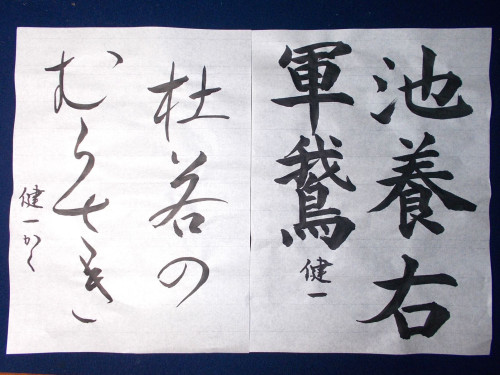 池養右
軍鵞
健一
杜若の
むらさき
健一かく